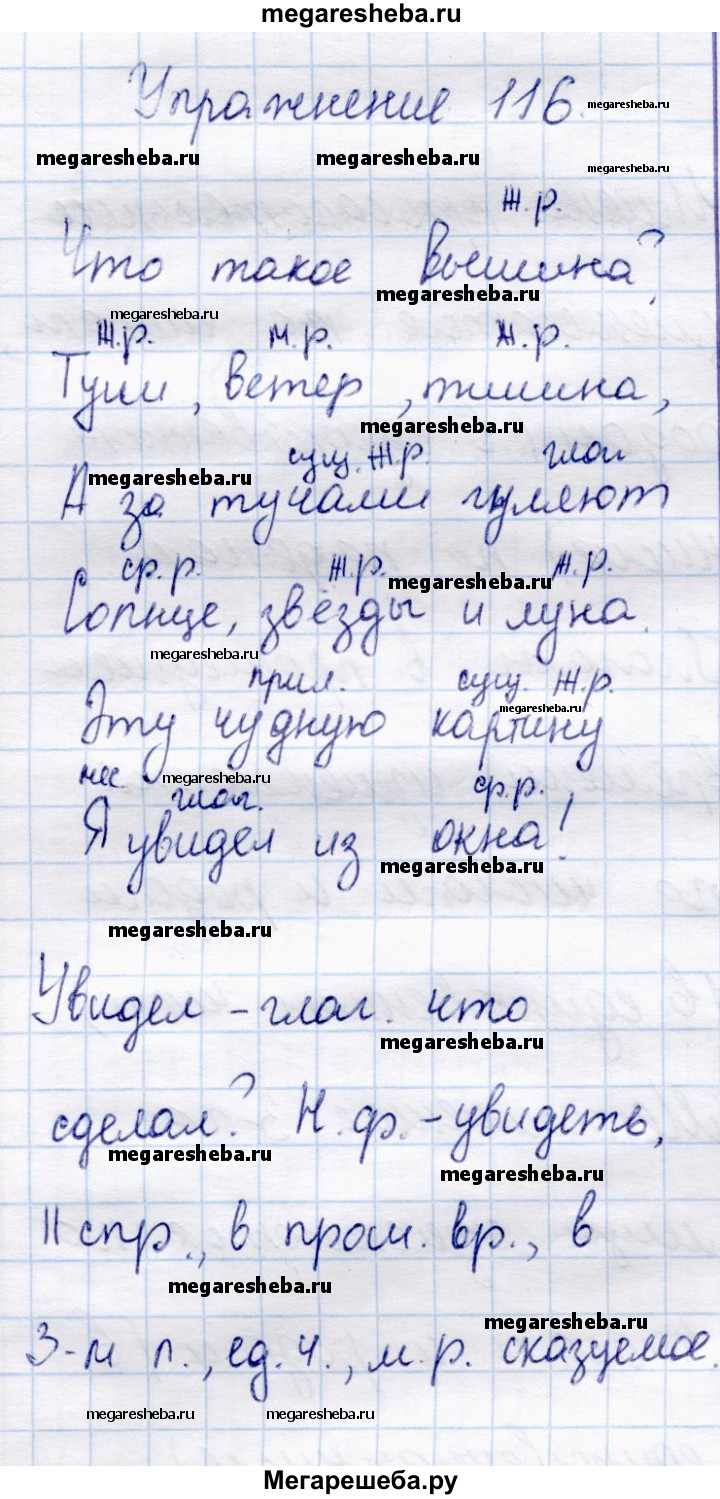 megaresheba.ru
Упражнение 116.
megaresheba.ru
megaresheba.ru megaresheba.ru megaresheba.ru
ж.р.
Что такое вышина?
megaresheba.ru
megaresheba.ru
ж.р. м.р. ж.р.
Тучи, ветер, тишина,
megaresheba.ru
сущ. ж.р. глаг
megaresheba.ru
А за тучами гуляют
ср.р. ж.р. ж.р.
megaresheba.ru
Солнце, звёзды и луна.
megaresheba.ru
прил. сущ. ж.р.
megaresheba.ru
Эту чудную картину
мес. глаг. ср.р.
megaresheba.ru
Я увидел из окна!
megaresheba.ru
megaresheba.ru
Увидел - глаг. что
megaresheba.ru
сделал? Н.ф. - увидеть,
megaresheba.ru
megaresheba.ru
II спр., в прош. вр., в
megaresheba.ru
megaresheba.ru
3-м л., ед.ч., м.р. сказуемое.
megaresheba.ru megaresheba.ru
Мегарешеба.ру